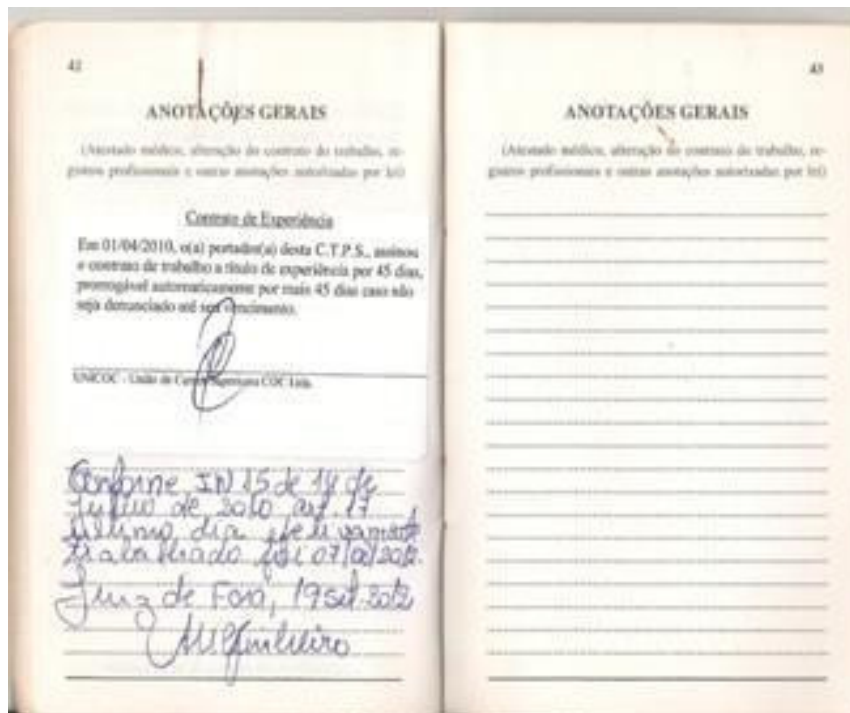 42
ANOTAÇÕES GERAIS
(Atestado médico, alteração do contrato do trabalho, re-
gistros profissionais e outras anotações autorizadas por lei)
Contrato de Experiência
Em 01/04/2010, o(a) portador(a) desta C.T.P.S., assinou
o contrato de trabalho a título de experiência por 45 dias,
prorrogável automaticamente por mais 45 dias caso não
seja denunciado até seu vencimento.
UNICOC - União de Cursos Superiores COC Ltda.
Conforme IN 15 de 14 de
Julho de 2010 art. 17
último dia efetivamente
trabalhado foi 07/2012.
Juiz de Fora, 19 set 2012
43
ANOTAÇÕES GERAIS
(Atestado médico, alteração do contrato do trabalho, re-
gistros profissionais e outras anotações autorizadas por lei)